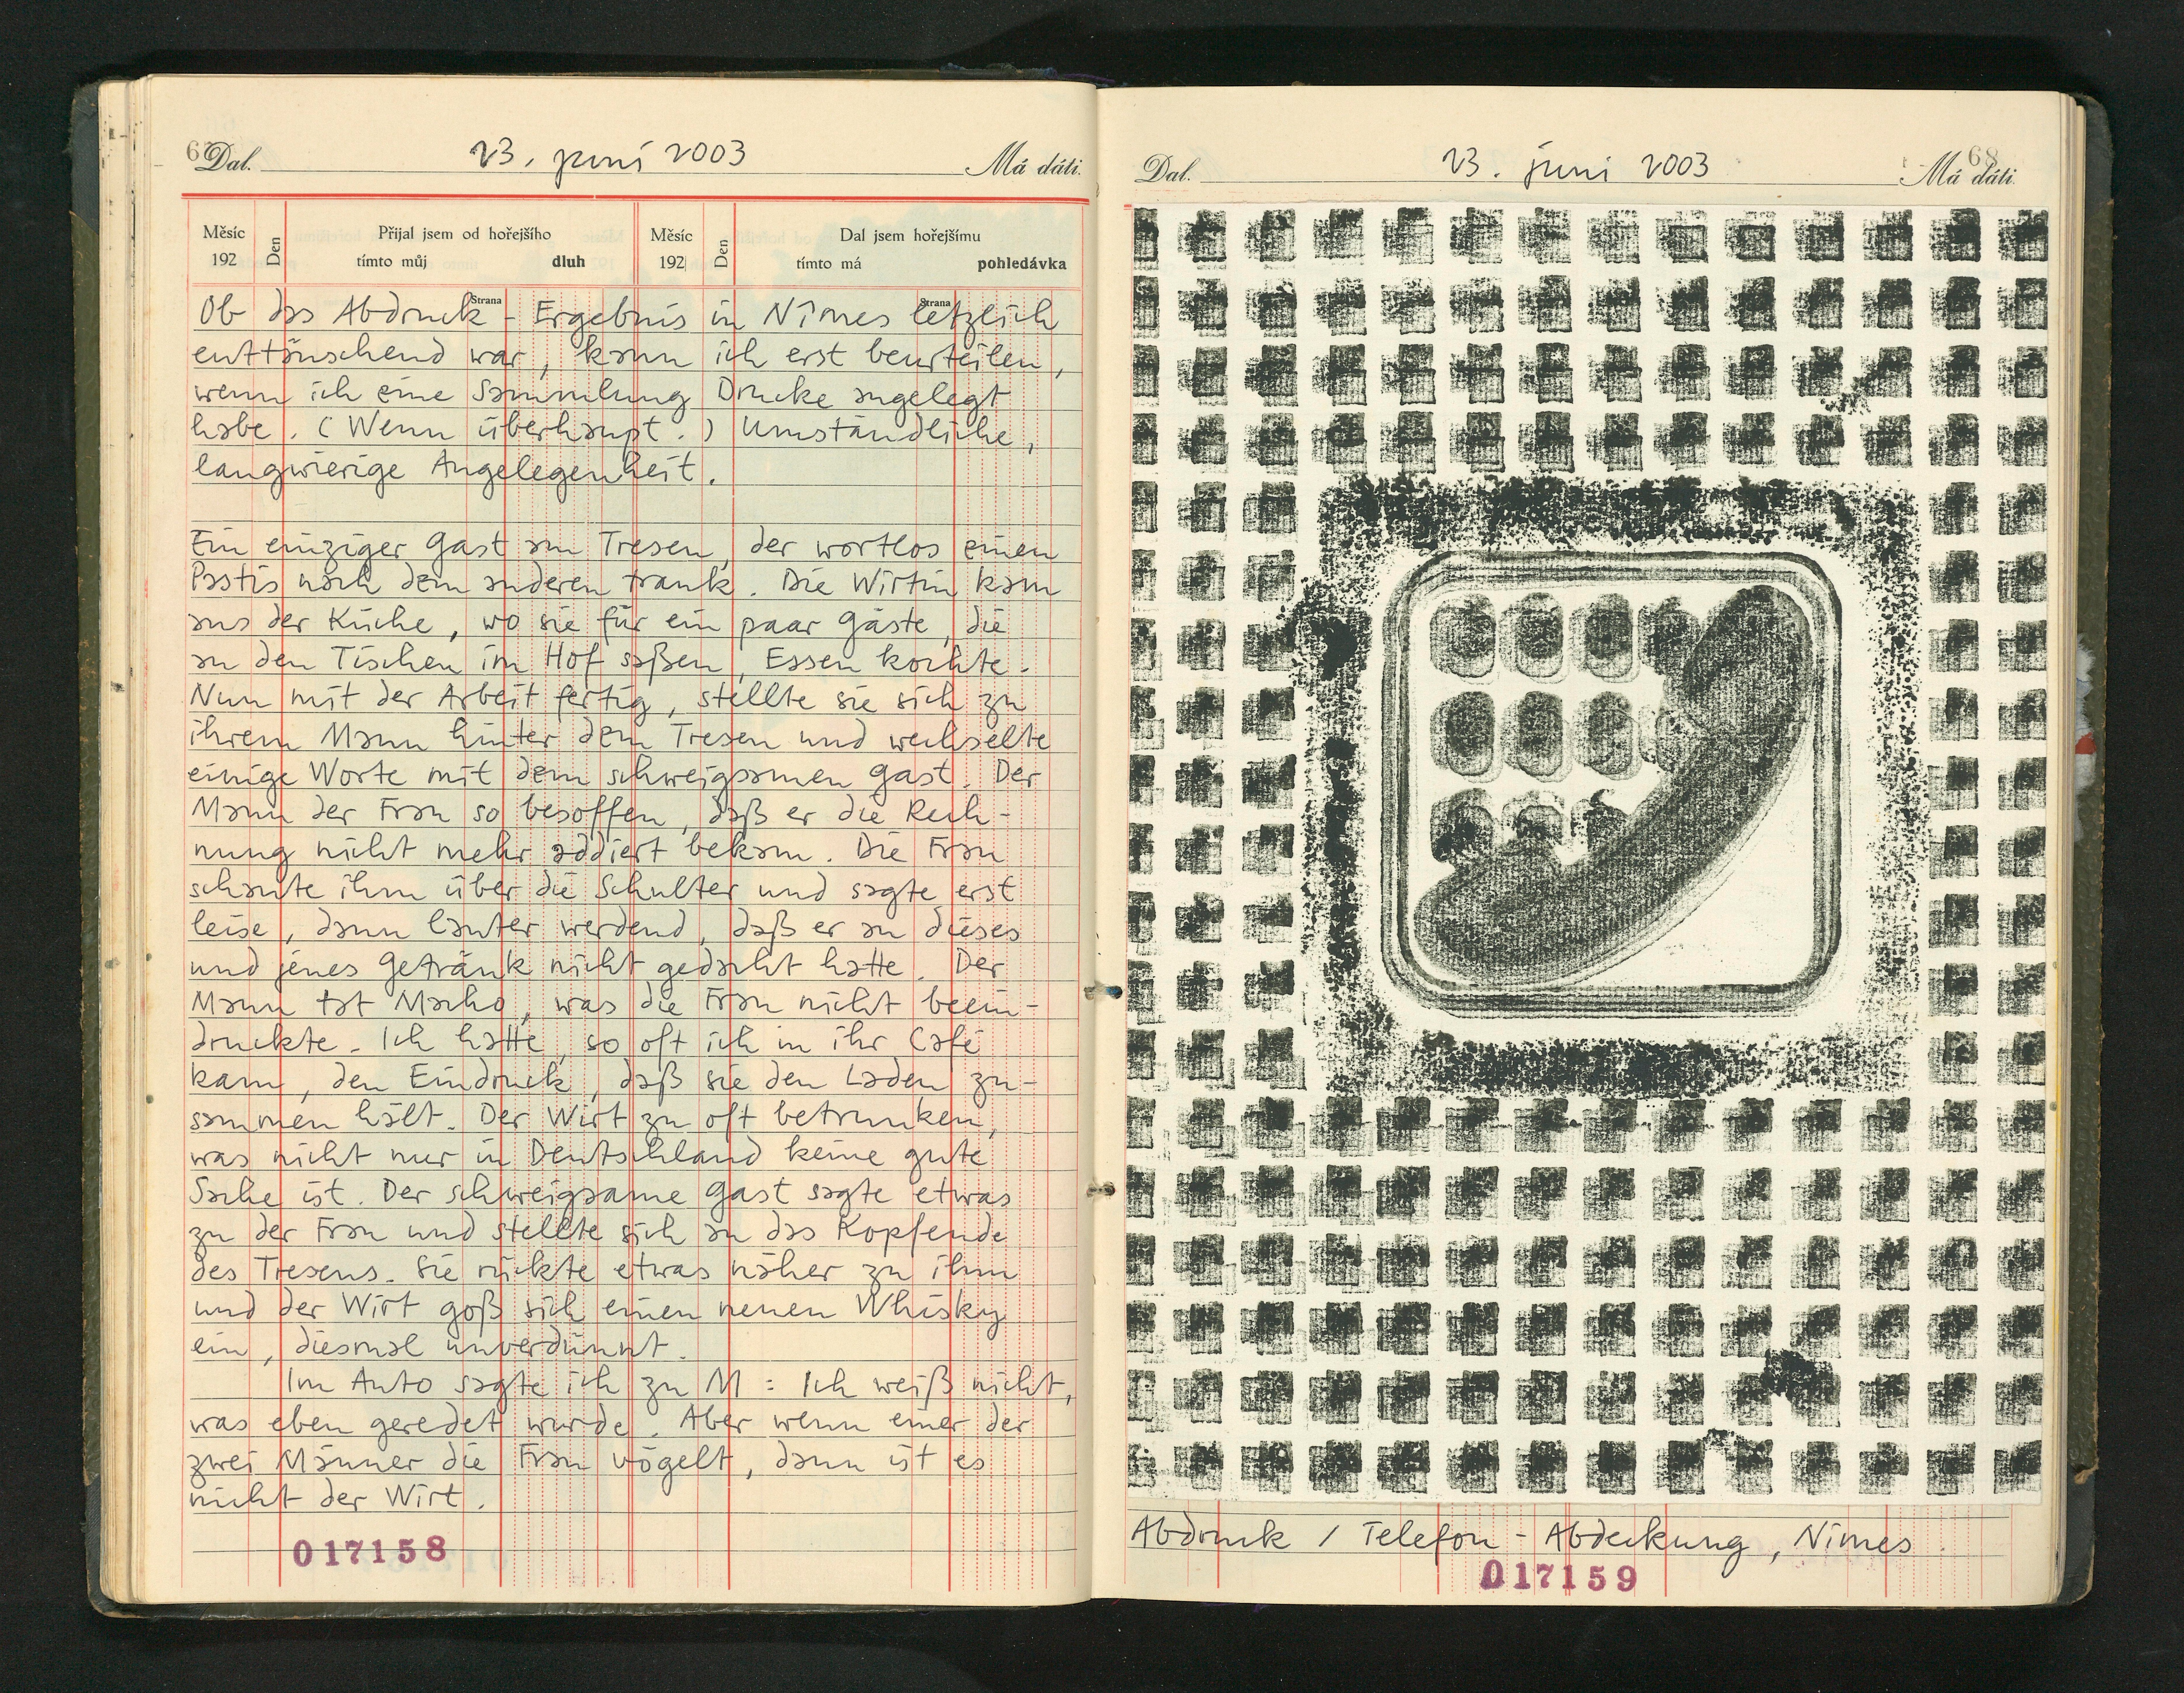 67
Dal. 23. juni 2003 Má dáti.
Měsíc 192 Den Přijal jsem od hořejšího tímto můj dluh Měsíc 192 Den Dal jsem hořejšímu tímto má pohledávka
Strana Strana
Ob das Abdruck-Ergebnis in Nîmes letzlich
enttäuschend war, kann ich erst beurteilen,
wenn ich eine Sammlung Drucke angelegt
habe. (Wenn überhaupt.) Umständliche,
langwierige Angelegenheit.
Ein einziger Gast am Tresen, der wortlos einen
Pastis nach dem anderen trank. Die Wirtin kam
aus der Küche, wo sie für ein paar Gäste, die
an den Tischen im Hof saßen, Essen kochte.
Nun mit der Arbeit fertig, stellte sie sich zu
ihrem Mann hinter dem Tresen und wechselte
einige Worte mit dem schweigsamen Gast. Der
Mann der Frau so besoffen, daß er die Rech-
nung nicht mehr addiert bekam. Die Frau
schaute ihm über die Schulter und sagte erst
leise, dann lauter werdend, daß er an dieses
und jenes Getränk nicht gedacht hatte. Der
Mann tat Macho, was die Frau nicht beein-
druckte. Ich hatte, so oft ich in ihr Café
kam, den Eindruck, daß sie den Laden zu-
sammen hält. Der Wirt zu oft betrunken,
was nicht nur in Deutschland keine gute
Sache ist. Der schweigsame Gast sagte etwas
zu der Frau und stellte sich an das Kopfende
des Tresens. Sie rückte etwas näher zu ihm
und der Wirt goß sich einen neuen Whisky
ein, diesmal unverdünnt.
Im Auto sagte ich zu M: Ich weiß nicht,
was eben geredet wurde. Aber wenn einer der
zwei Männer die Frau vögelt, dann ist es
nicht der Wirt.
017158
68
Dal. 23. juni 2003 Má dáti.
Abdruck / Telefon-Abdeckung, Nîmes.
017159